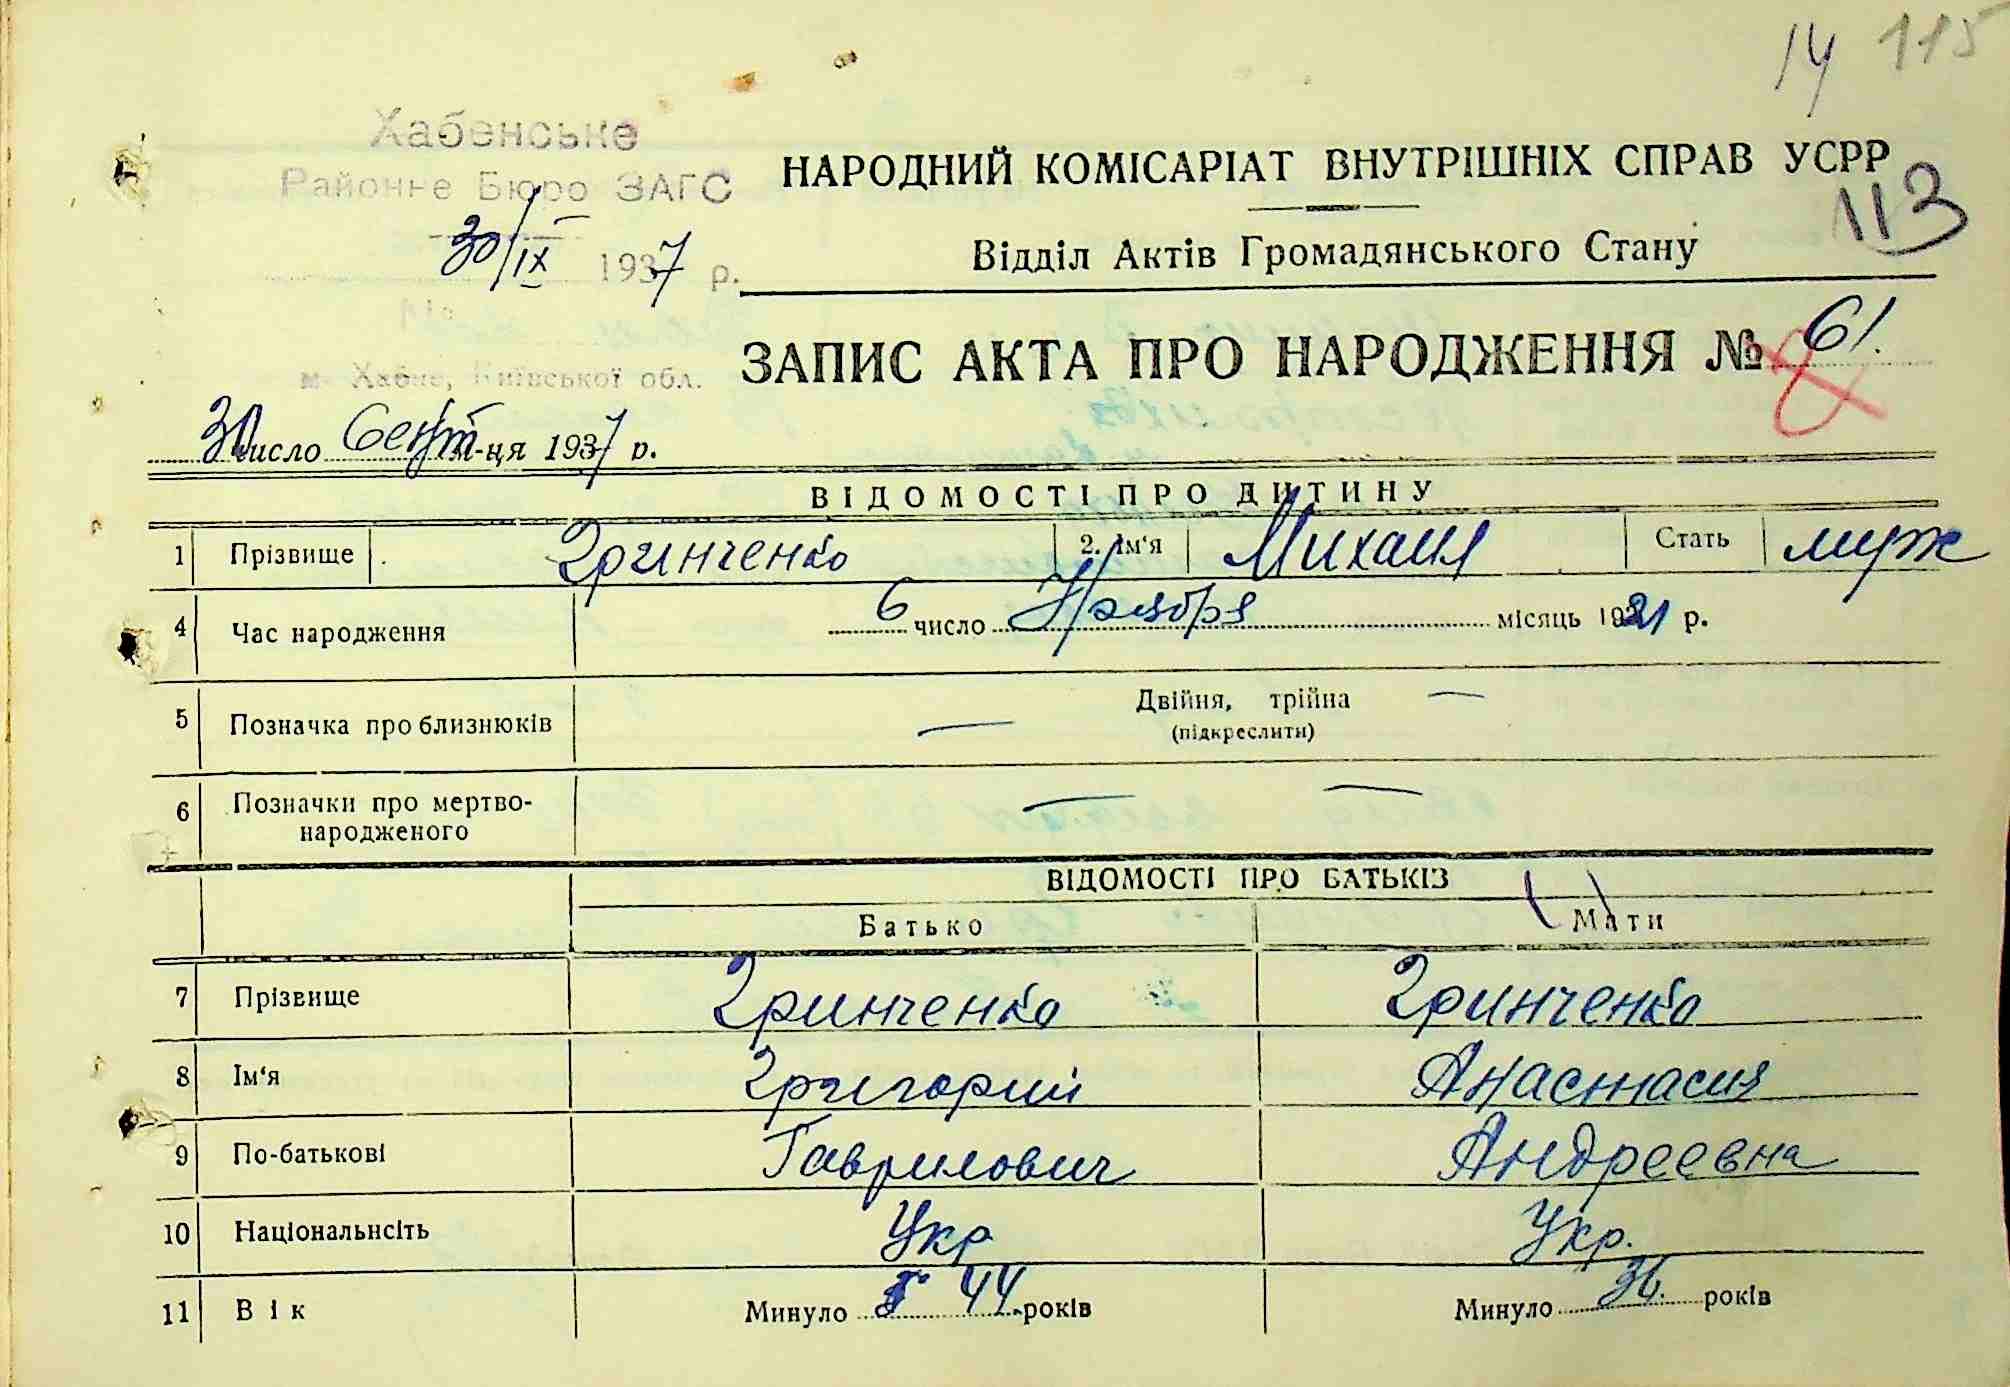 14 115
Хабенське
Районне Бюро ЗАГС
30/IX 1937 р.
№
м. Хабне, Київської обл.
НАРОДНИЙ КОМІСАРІАТ ВНУТРІШНІХ СПРАВ УСРР
113
Відділ Актів Громадянського Стану
ЗАПИС АКТА ПРО НАРОДЖЕННЯ № 61.
30 число Сент м-ця 1937 р.
ВІДОМОСТІ ПРО ДИТИНУ
1 Прізвище Гринченко 2. Ім'я Михаил Стать муж
4 Час народження 6 число Ноября місяць 1921 р.
5 Позначка про близнюків — Двійня, трійна —
(підкреслити)
6 Позначки про мертво-
народженого — —
ВІДОМОСТІ ПРО БАТЬКІВ
Батько Мати
7 Прізвище Гринченко Гринченко
8 Ім'я Григорий Анастасия
9 По-батькові Гаврилович Андреевна
10 Національнсіть Укр Укр.
11 Вік Минуло 44. років Минуло 36. років